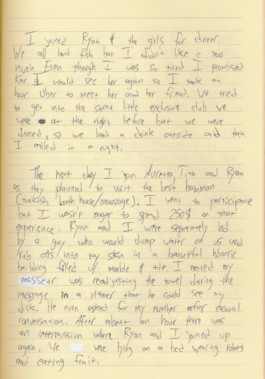 I joined Ryan & the girls for dinner.
We all had fish but I didn't like it too
much. Even though I was so tired I promised
Kar I would see her again so I took an
hour Uber to meet her and her friend. We tried
to get into the same little exclusive club we
were at the night before but we were
denied, so we had a drink outside and then
I called it a night.
The next day I join Aurenzo, Tina and Ryan
as they planned to visit the best hammam
(Turkish bath house/massage). I want to participate
but I wasn't eager to spend 250$ on that
experience. Ryan and I were separately led
by a guy who would dump water on us and
rub oils into my skin in a beautiful historic
building filled w/ marble & tile. I noticed my
masseur was readjusting the towel during the
massage in a manner that he could see my
dick. He even asked for my number after casual
conversation. After about an hour there was
an intermission where Ryan and I joined up
again. We were lying on a bed wearing robes
and eating fruit.